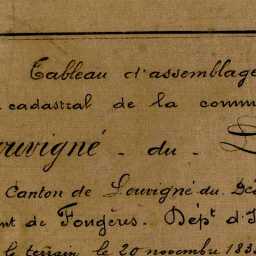 Tableau d'assemblage
cadastral de la comm
uvigné - du -
Canton de Louvigné du Dé
nt de Fougères. Dépt d'I
le terrain le 20 novembre 183